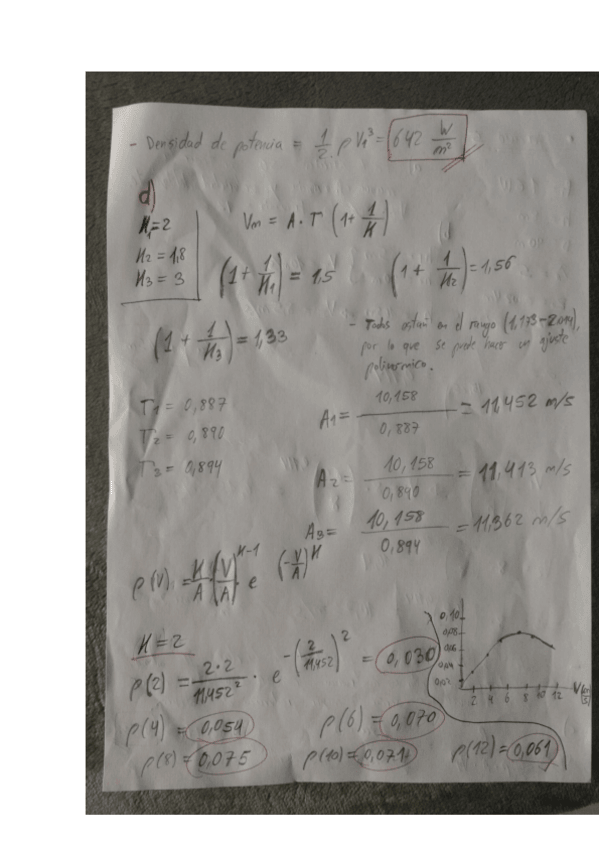 - Densidad de potencia = 1/2 ρ V₁³ = 642 W/m²
d)
K₁=2
K₂ = 1,8
K₃ = 3
Vm = A · Γ (1 + 1/K)
(1 + 1/K₁) = 1,5
(1 + 1/K₂) = 1,56
(1 + 1/K₃) = 1,33
- Todos están en el rango
por lo que se puede hacer un ajuste
polinómico.
Γ₁ = 0,887
Γ₂ = 0,890
Γ₃ = 0,894
A₁ = 10,158 / 0,887 = 11,452 m/s
A₂ = 10,158 / 0,890 = 11,413 m/s
A₃ = 10,158 / 0,894 = 11,362 m/s
p(V) = K/A (V/A)^(K-1) e^(-V/A)^K
K = 2
p(2) = 2·2 / 11,452² · e^-(2/11,452)² = 0,030
p(4) = 0,054
p(6) = 0,070
p(8) = 0,075
p(10) = 0,071
p(12) = 0,061
0,10
0,08
0,06
0,04
0,02
2 4 6 8 10 12
V (m/s)